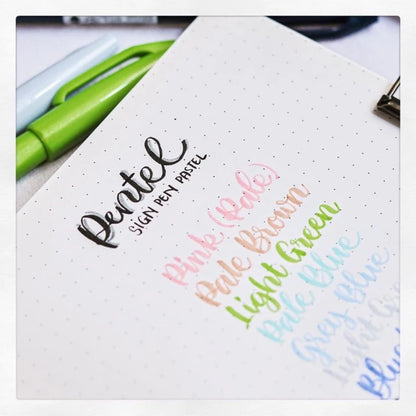 Pentel
SIGN PEN PASTEL
Pink (Pale)
Pale Brown
Light Green
Pale Blue
Grey Blue
Light
Blue